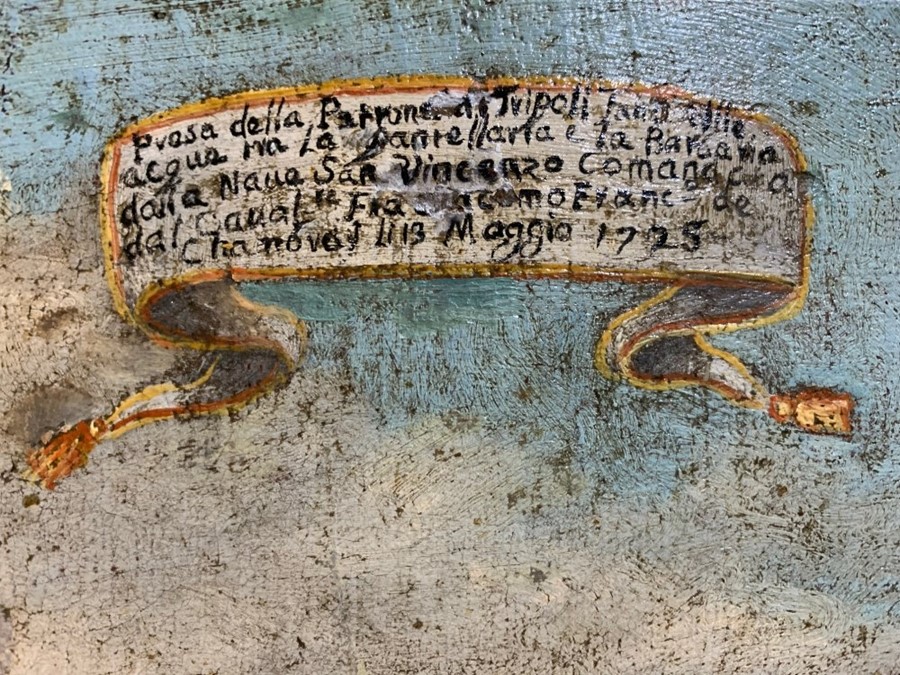 Presa della Patrona di Tripoli fatta alle
acque tra la Pantellaria e la Barbaria
dalla Naue San Vincenzo Comandata
dal Caual.re Fra Giacomo Franc.o de
Chanoves li 13 Maggio 1725